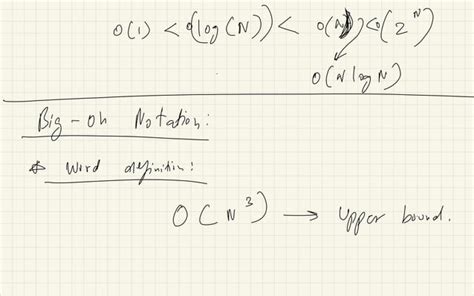 O(1) < O(log(N)) < O(N) < O(2^N)
O(N log N)
Big-oh Notation:
* Word definition:
O(N^3) → Upper bound.